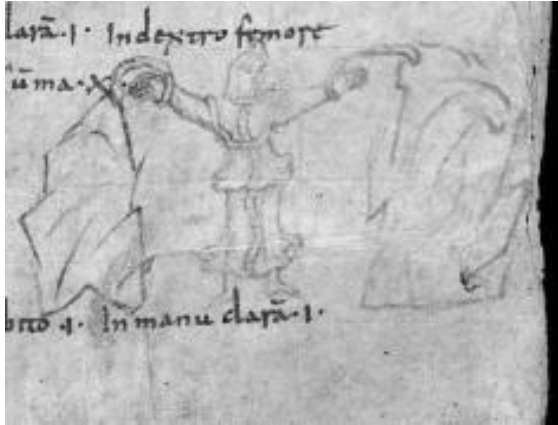 larā·ı· In dextro femore
ūma·x·
bito·ı· In manu clarā·ı·